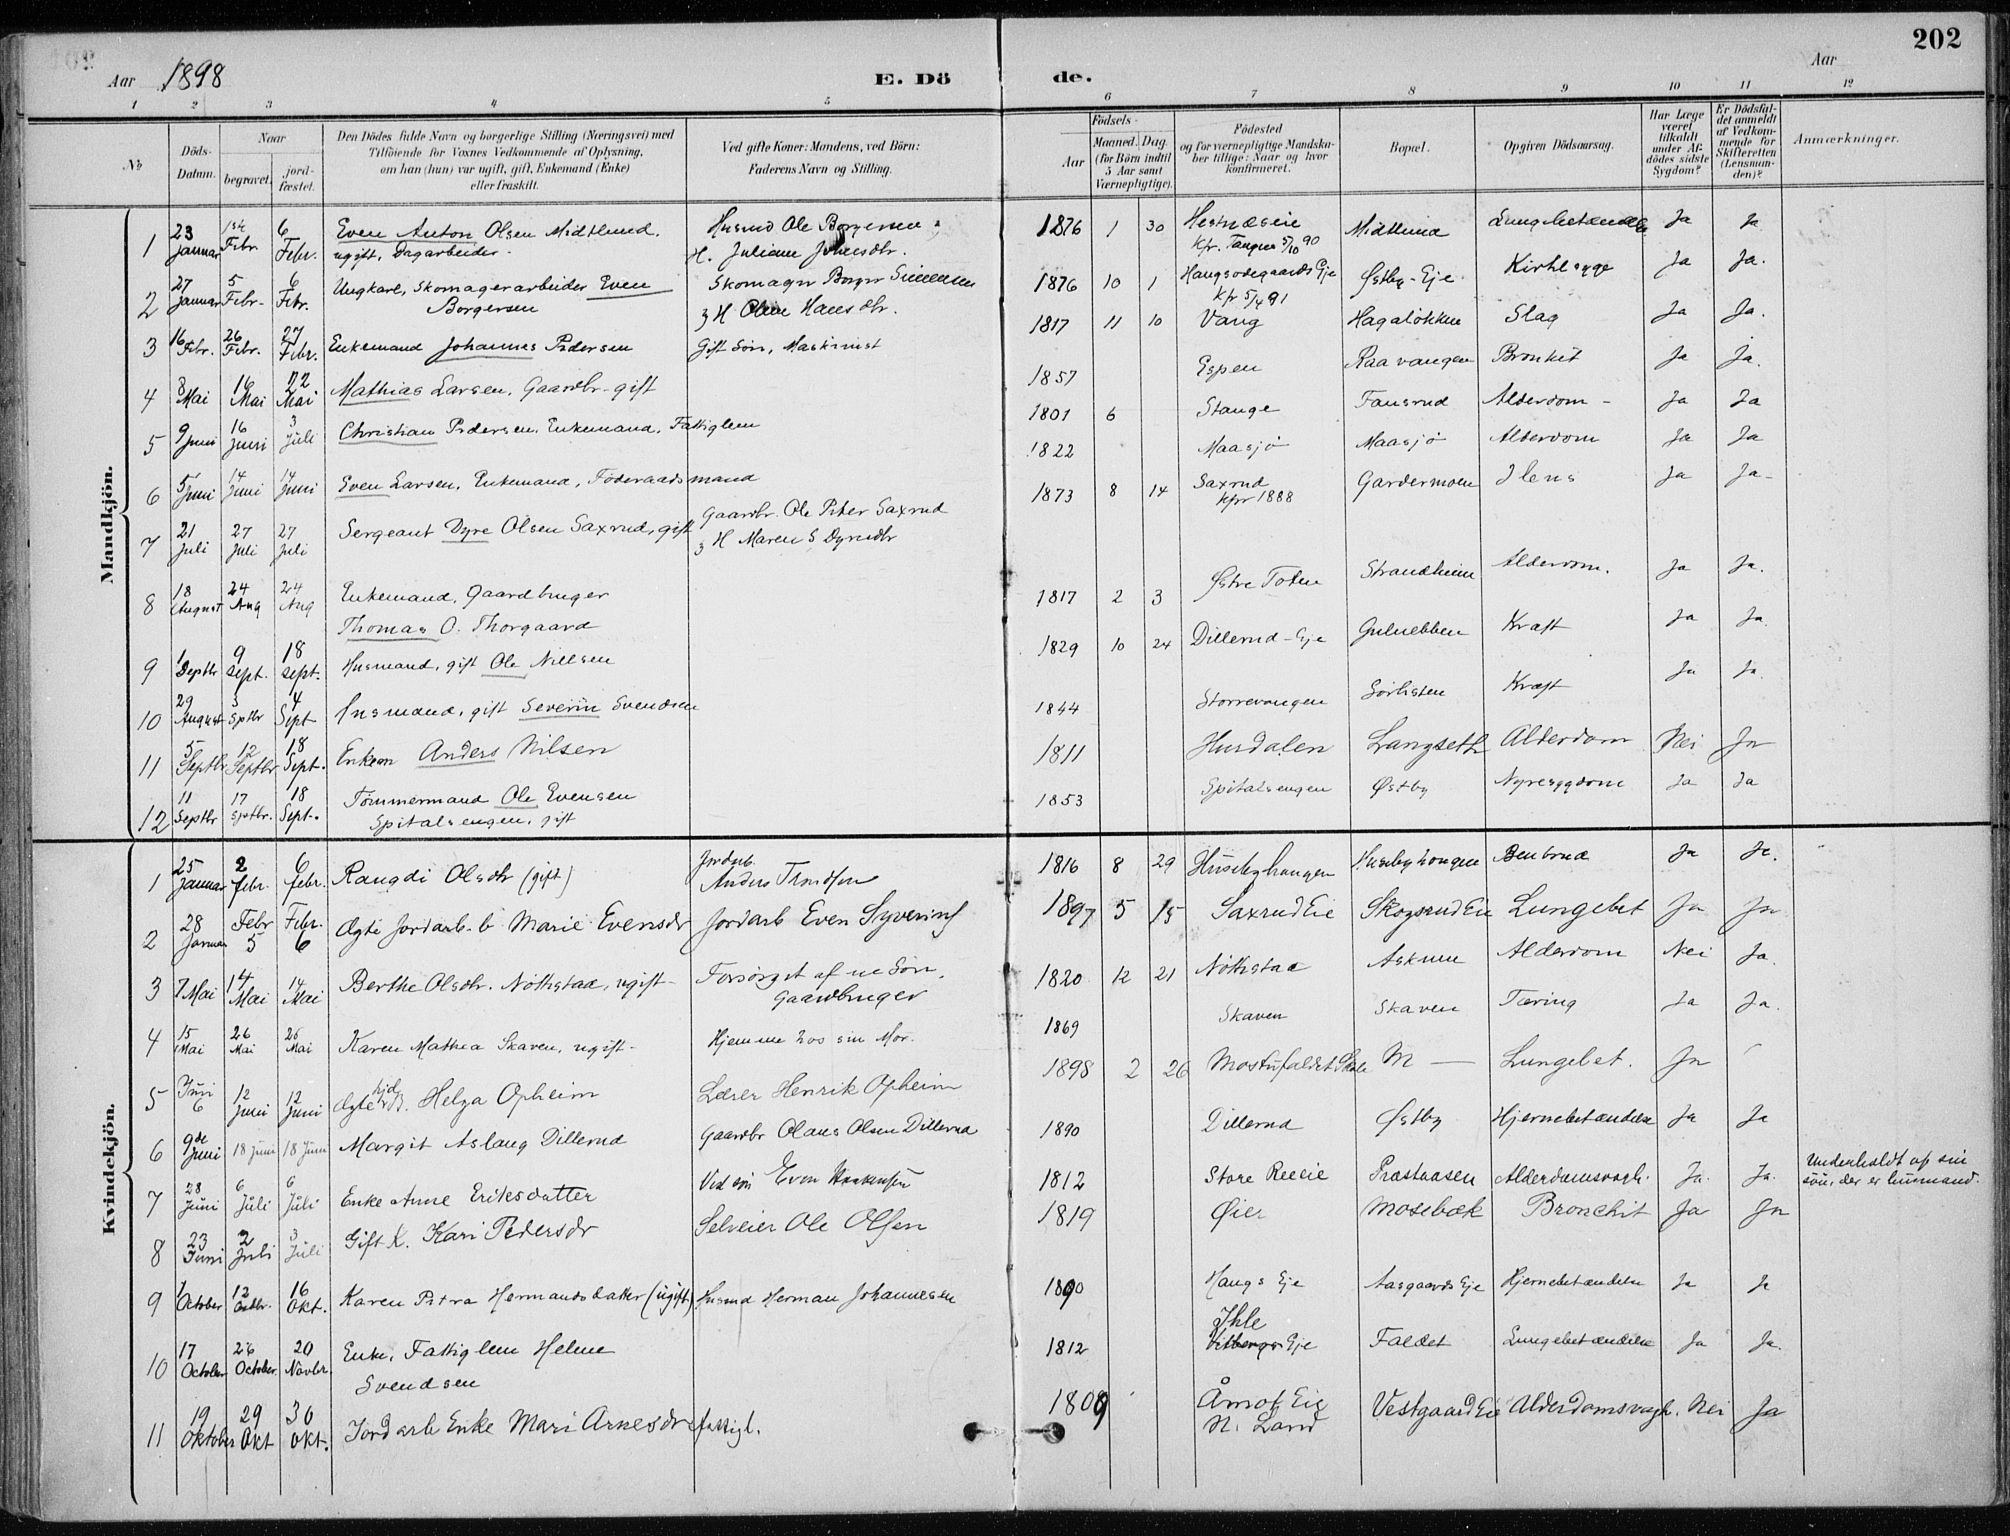 202
Aar 1898
E. Dö
de.
Aar
1 2 3 4 5 6 7 8 9 10 11 12
№
Döds-
Datum.
Naar
begravet.
jord-
fæstet.
Den Dödes fulde Navn og borgerlige Stilling (Næringsvei) med
Tilföiende for Voxnes Vedkommende af Oplysning,
om han (hun) var ugift, gift, Enkemand (Enke)
eller fraskilt.
Ved gifte Koner: Mandens, ved Börn:
Faderens Navn og Stilling.
Födsels-
Aar
Maaned. Dag.
(for Börn indtil
5 Aar samt
Værnepligtige).
Födested
og for værnepligtige Mandska-
ber tillige: Naar og hvor
konfirmeret.
Bopæl.
Opgiven Dödsaarsag.
Har Læge
været
tilkaldt
under Af-
dödes sidste
Sygdom?
Er Dödsfal-
det anmeldt
af Vedkom-
mende for
Skifteretten
(Lensman-
den)?
Anmærkninger.
Mandkjön.
1 23 Januar 1ste Febr. 6 Febr. Even Anton Olsen Midtlund, Husmd Ole Borgersen 1876 1 30 Hestnæseie Midtlund Lungebetændelse Ja Ja
ugift, Dagarbeider. H. Juliane Johnsdtr. Kfr. Tangen 5/10 90
2 27 Januar 5 Febr. 6 Febr. Ungkarl, Skomagerarbeider Even Skomager Borger Simensen 1876 10 1 Haugsodegaards Eje Østby-Eje Kirtlsyge Ja Ja.
Borgersen & H Oline Hansdtr. Kfr 5/4 91
3 16 Febr. 26 Febr. 27 Febr. Enkemand Johannes Pedersen Gift Søn, Maskinist 1817 11 10 Vang Hagaløkken Slag Ja Ja.
4 8 Mai 16 Mai 22 Mai Mathias Larsen, Gaardbr. gift 1857 Espen Raavangen Bronkit Ja Ja.
5 9 Juni 16 Juni 3 Juli Christian Pedersen, Enkemand, Fattiglem 1801 6 Stange Fansrud Alderdom - Ja Ja
6 5 Juni 14 Juni 14 Juni Even Larsen, Enkemand, Föderaadsmand 1822 Maasjø Maasjø Alderdom Ja Ja
7 21 Juli 27 Juli 27 Juli Sergeant Dyre Olsen Saxrud, gift Gaardbr. Ole Peter Saxrud 1873 8 14 Saxrud Gardermoen Ilens Ja Ja-
& H Maren S Dyresdtr kfr 1888
8 18 August 24 Aug 24 Aug Enkemand, Gaardbruger 1817 2 3 Østre Toten Strandheim Alderdom. Ja Ja.
Thomas O. Thorgaard
9 1 Septbr 9 Sept. 18 Sept. Husmand, gift Ole Nielsen 1829 10 24 Dillerud-Eje Guluebben Kræft Ja Ja
10 29 August 3 Septbr 4 Sept Husmand, gift Severin Svendsen 1844 Storrevangen Sørlisten Kræft Ja Ja
11 5 Septbr 12 Septbr 18 Sept. Enkem Anders Nilsen 1811 Hurdalen Langseth Alderdom Nei Ja
12 11 Septbr 17 Septbr. 18 Sept. Tømmermand Ole Evensen 1853 Spitalsengen Østby Nyresygdom Ja Ja
Spitalsengen, gift
Kvindekjön.
1 25 Januar 2 febr. 6 febr. Rangdi Olsdtr (gift) Jordarb. 1816 8 29 Husebyhaugen Husebyhaugen Benbrud Ja Ja.
Anders Trondsen
2 28 Januar Febr 5 Febr. 6 Ægte Jordarb. b. Marie Evensdr Jordarb Even Syversens 1897 5 15 SaxrudEie SkogsrudEie Lungebet Ja Ja
3 7 Mai 14 Mai 14 Mai Berthe Olsdtr. Nøthstad, ugift - Forsørget af ne Søn, 1820 12 21 Nøthstad Askum Alderdom Nei Ja.
Gaardbruger
4 15 Mai 26 Mai 26 Mai Karen Mathea Skaven, ugift - Hjemme hos sin Mor. 1869 Skaven Skaven Tæring Ja Ja.
5 Juni 6 12 Juni 12 Juni Ægte B. Helga Opheim Lærer Henrik Opheim 1898 2 26 Mostufaldet Skole M — Lungebet. Ja
6 9de Juni 18 Juni 18 Juni Margit Aslaug Dillerud Gaardbr Olaus Olsen Dillerud 1890 Dillerud Østby Hjernebetændelse Ja Ja
7 28 Juni 6 Juli 6 Juli Enke Anne Eriksdatter Ved søn Even Haakensen 1812 Store Reeeie Præstaasen Alderdomsvagh. Ja. Ja. Underholdt af sin
søn, der er husmand.
8 23 Juni 2 Juli 3 Juli Gift K. Kari Pedersdr Selveier Ole Olsen 1819 Øier Mosebæk Bronchit Ja Ja
9 1 October 12 Octbr. 16 Okt. Karen Petra Hermandsdatter (ugift) Husmd Herman Johannesen 1890 Haugs Eje Aasgaards Eje Hjernebetændelse Ja Ja
10 17 October 26 October 20 Novbr. Enke, Fattiglem Helene 1812 Ihle Faldet Lungebetændelse Ja Ja.
Svendsen Eje
11 19 Oktober 29 Okt 30 Okt. Jordarb Enke Mari Arnesdr fattigl. 1809 Åmot Eie VestgaardEie Alderdomsvagh. Nei Ja
N. Land